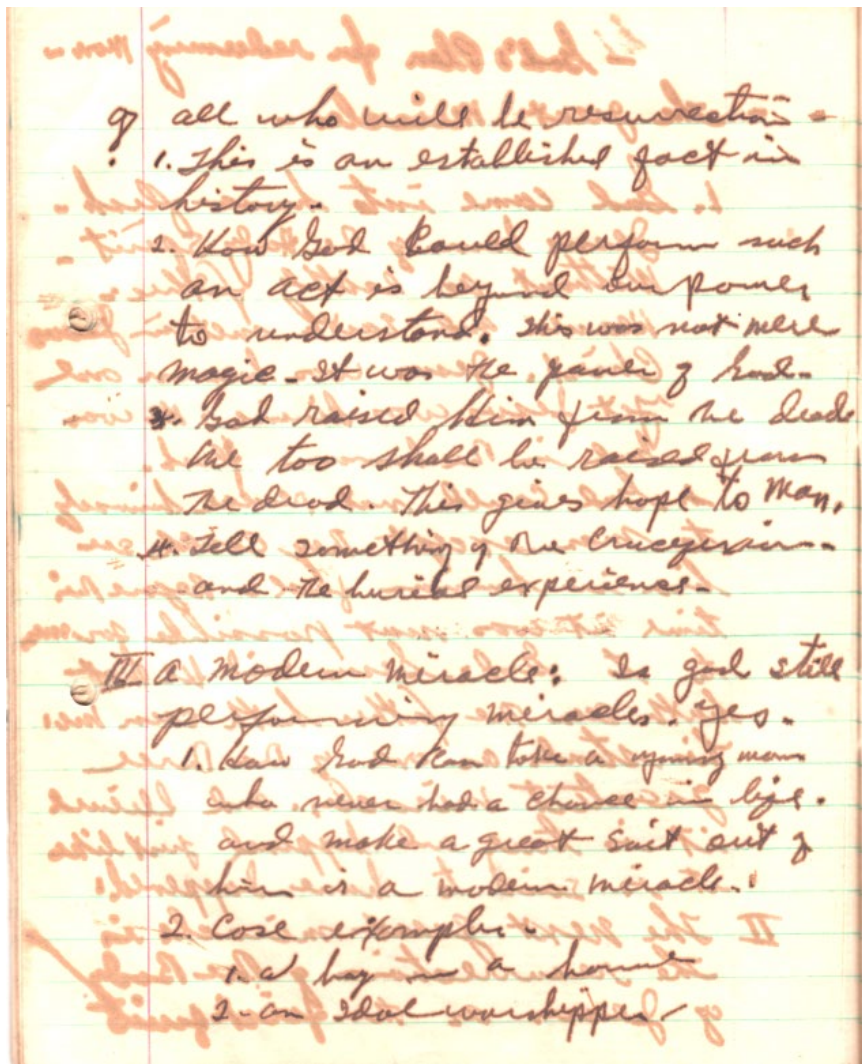 of all who will be resurrection -
1. This is an established fact in
history.
2. How God could perform such
an act is beyond our power
to understand. This was not mere
magic - It was the power of God.
3. God raised Him from the dead
We too shall be raised from
the dead. This gives hope to Man.
4. Tell something of the Crucifixion -
and the burial experience -
IV A modern miracle: Is God still
performing miracles. Yes.
1. How God can take a young man
who never had a chance in life.
and make a great out of
him is a modern miracle.
2. Case examples.
1. A boy in a home
2 - an Idol worshipper -